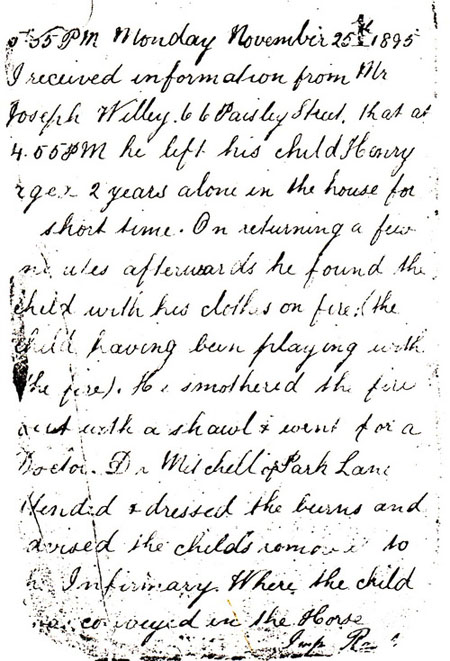 5.55 PM Monday November 25th 1895
I received information from Mr
Joseph Willey. 66 Paisley Street, that at
4.55 PM he left his child Henry
aged 2 years alone in the house for
short time. On returning a few
minutes afterwards he found the
child with his clothes on fire. (the
child having been playing with
the fire). He smothered the fire
out with a shawl & went for a
Doctor. Dr Mitchell of Park Lane
attended & dressed the burns and
advised the child's removal to
the Infirmary. Where the child
was conveyed in the Horse